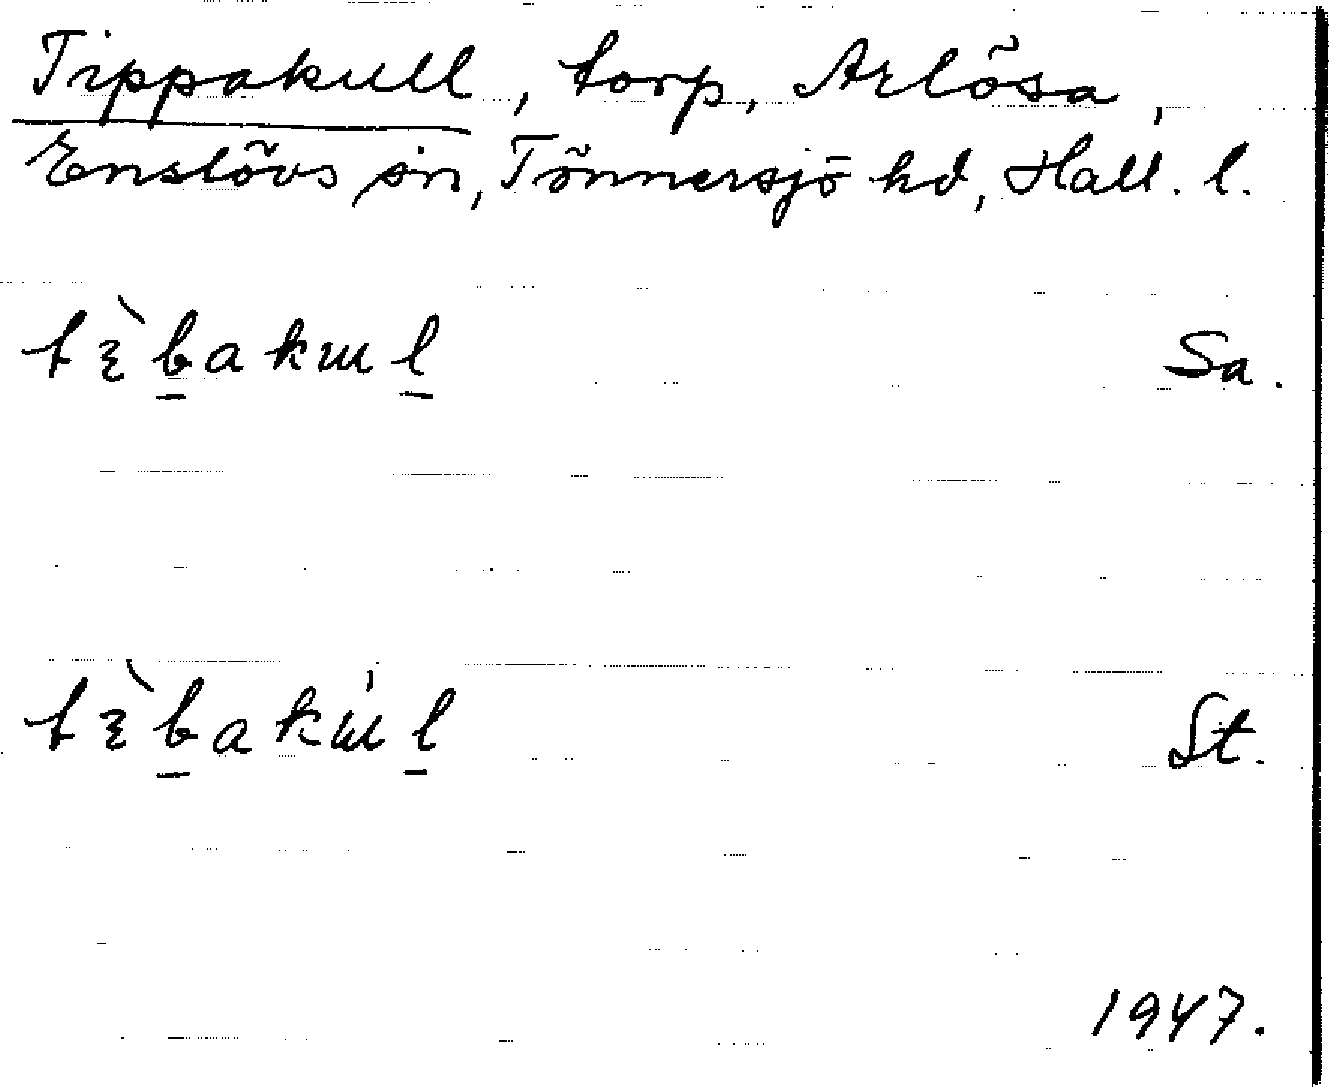 Tippakull, torp, Arlösa,
Enslövs sn, Tönnersjö hd, Hall. l.
tɛ̀bakɯl Sa.
tɛ̀bakɯ́l St.
1947.